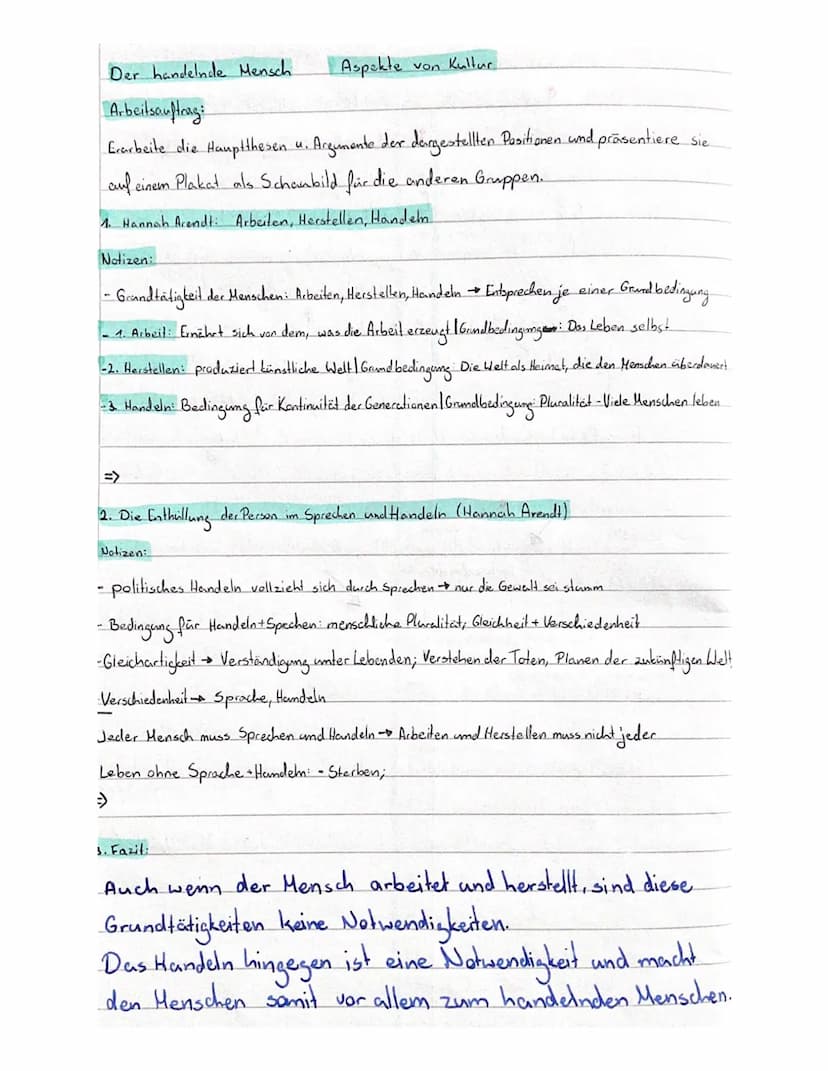 Der handelnde Mensch Aspekte von Kultur
Arbeitsauftrag:
Erarbeite die Hauptthesen u. Argumente der dargestellten Positionen und präsentiere sie
auf einem Plakat als Schaubild für die anderen Gruppen.
1. Hannah Arendt: Arbeiten, Herstellen, Handeln
Notizen:
- Grundtätigkeit der Menschen: Arbeiten, Herstellen, Handeln → Entsprechen je einer Grundbedingung
- 1. Arbeit: Ernährt sich von dem, was die Arbeit erzeugt | Grundbedingung: Das Leben selbst
-2. Herstellen: produziert künstliche Welt | Grundbedingung: Die Welt als Heimat, die den Menschen überdauert
-3. Handeln: Bedingung für Kontinuität der Generationen | Grundbedingung: Pluralität - Viele Menschen leben
=>
2. Die Enthüllung der Person im Sprechen und Handeln (Hannah Arendt)
Notizen:
- politisches Handeln vollzieht sich durch Sprechen → nur die Gewalt sei stumm
- Bedingung für Handeln + Spechen: menschliche Pluralität, Gleichheit + Verschiedenheit
-Gleichartigkeit → Verständigung unter Lebenden; Verstehen der Toten, Planen der zukünftigen Welt
Verschiedenheit → Sprache, Handeln
Jeder Mensch muss Sprechen und Handeln → Arbeiten und Herstellen muss nicht jeder
Leben ohne Sprache + Handeln: - Sterben;
=>
3. Fazil:
Auch wenn der Mensch arbeitet und herstellt, sind diese
Grundtätigkeiten keine Notwendigkeiten.
Das Handeln hingegen ist eine Notwendigkeit und macht
den Menschen somit vor allem zum handelnden Menschen.